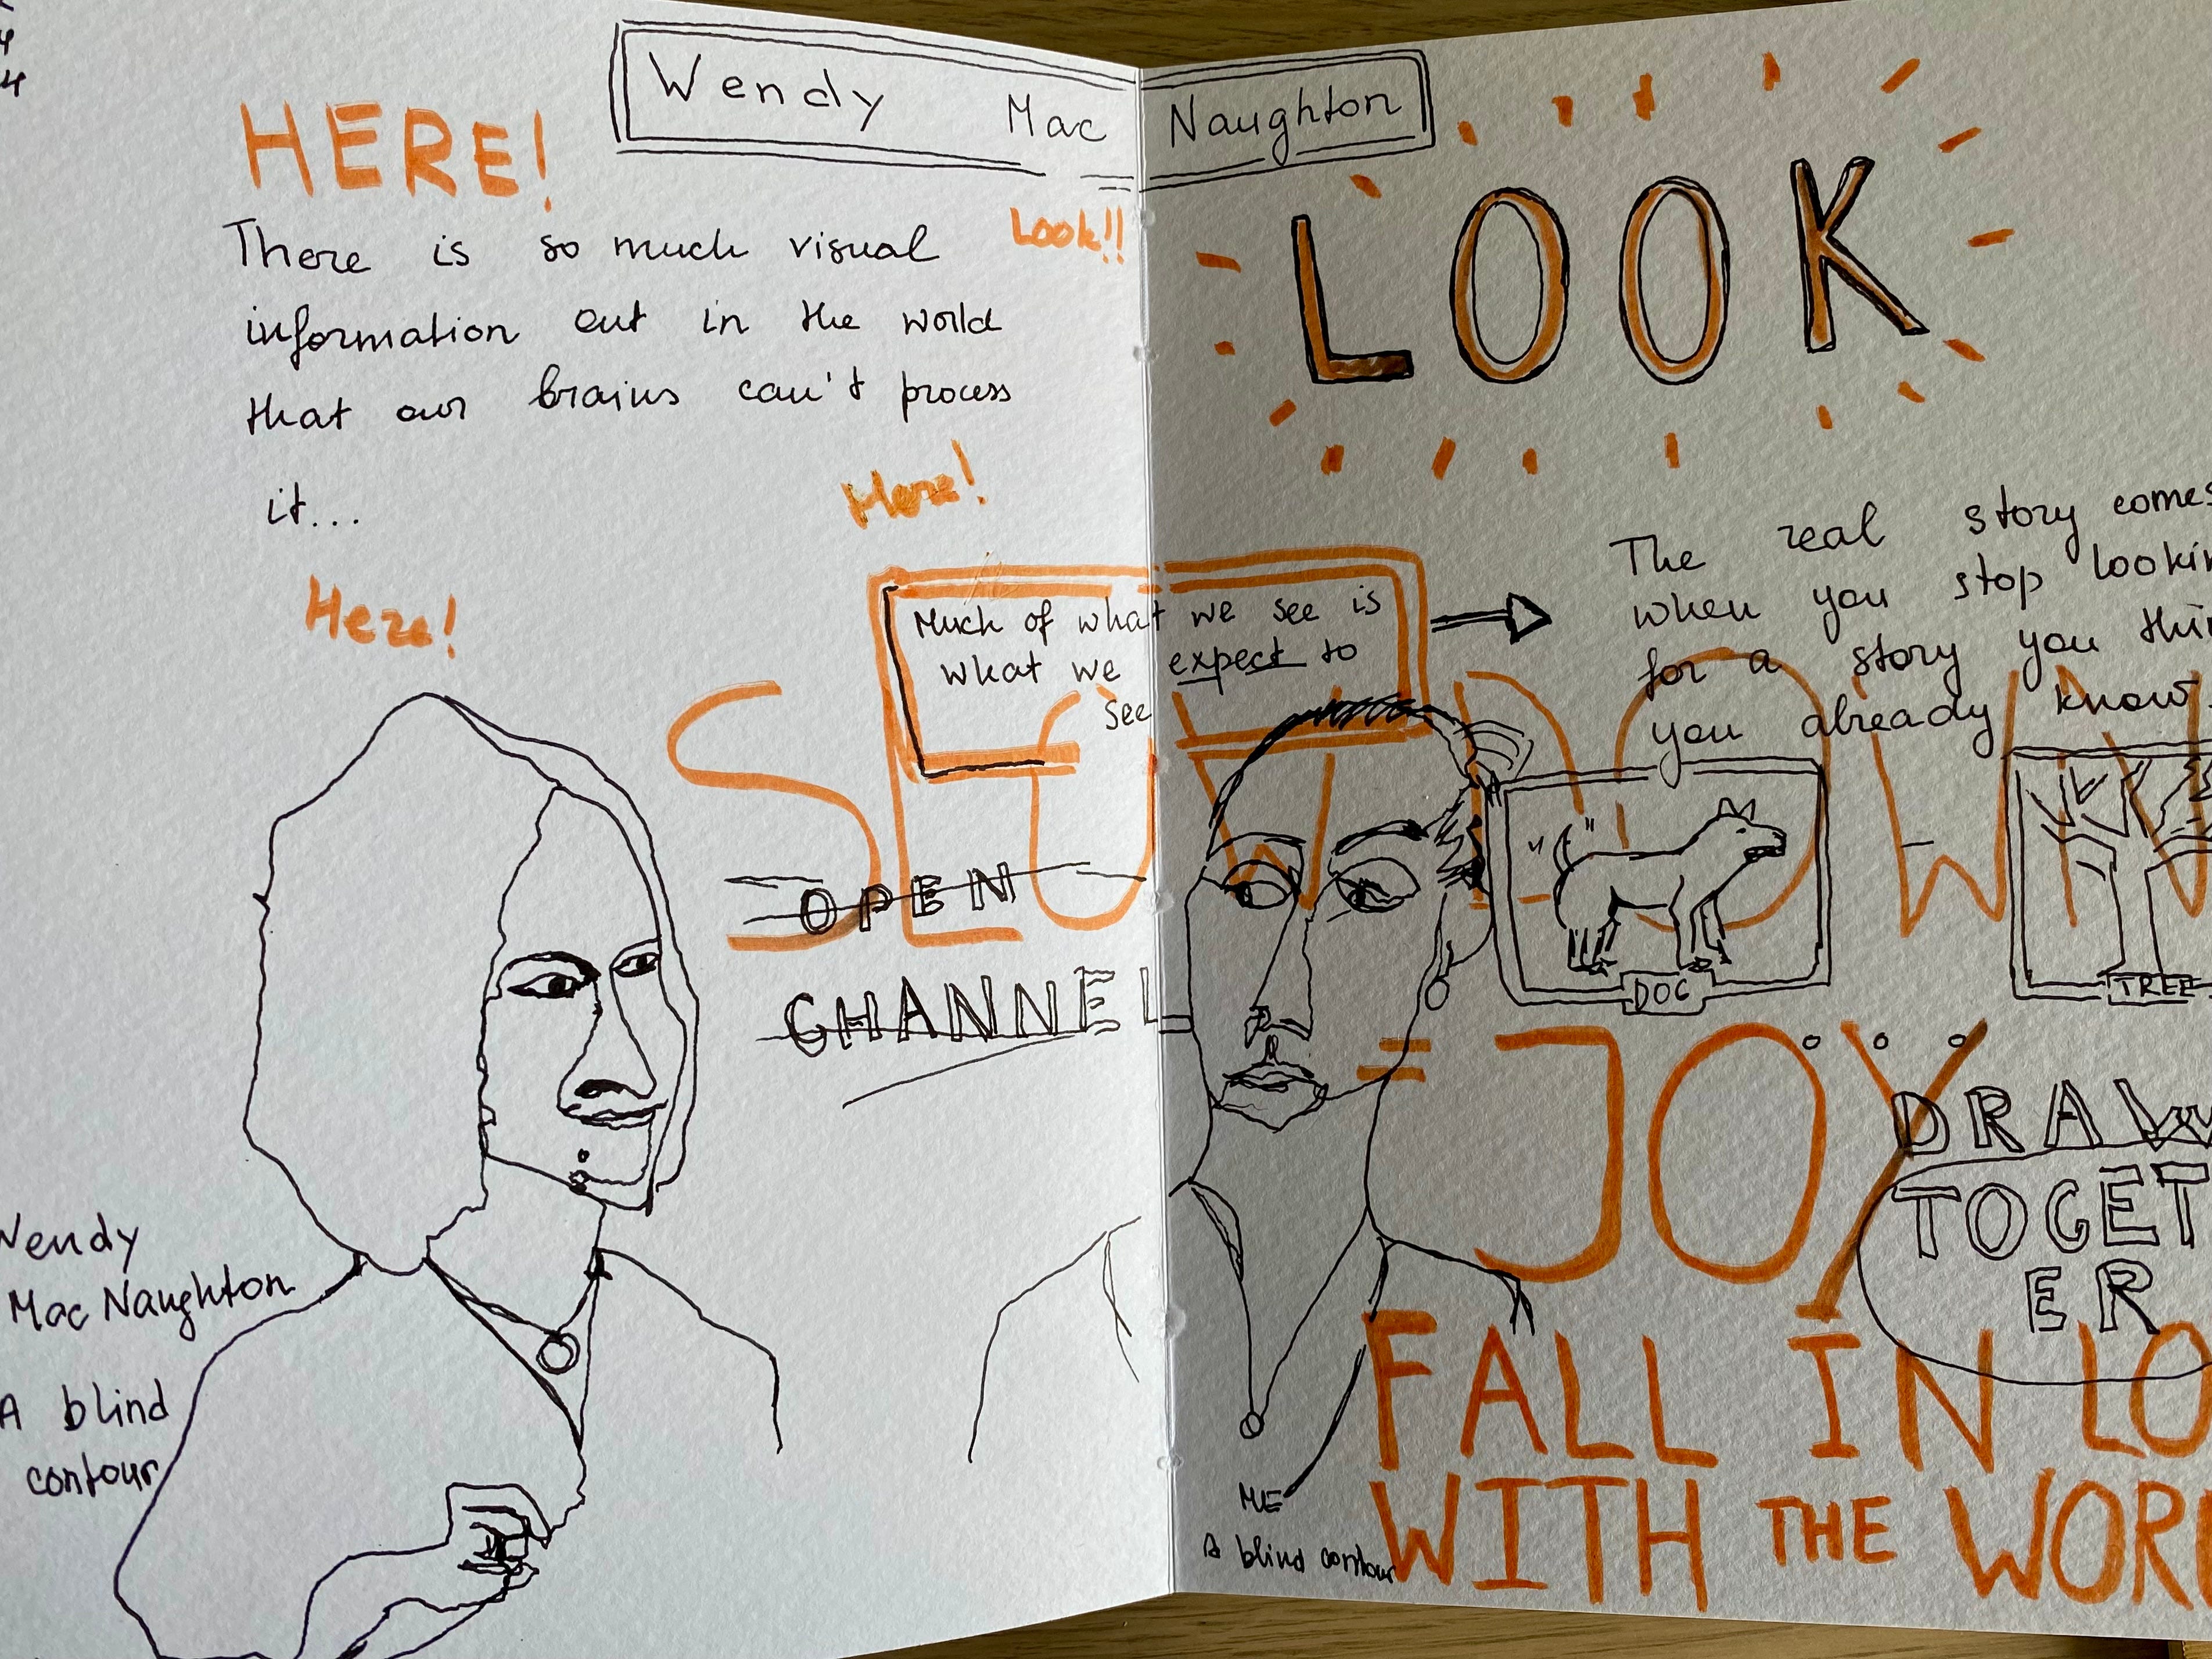 Wendy Mac Naughton
HERE!
Look!!
There is so much visual
information out in the world
that our brains can't process
it...
Here!
Here!
Much of what we see is
what we expect to
see
OPEN
CHANNEL
Wendy
Mac Naughton
A blind
contour
LOOK
The real story comes
when you stop
for a story you
you already know
SLOW DOWN
DOG
TREE
= JOY
DRAW
TOGET
ER
FALL IN
WITH THE
ME
A blind contour